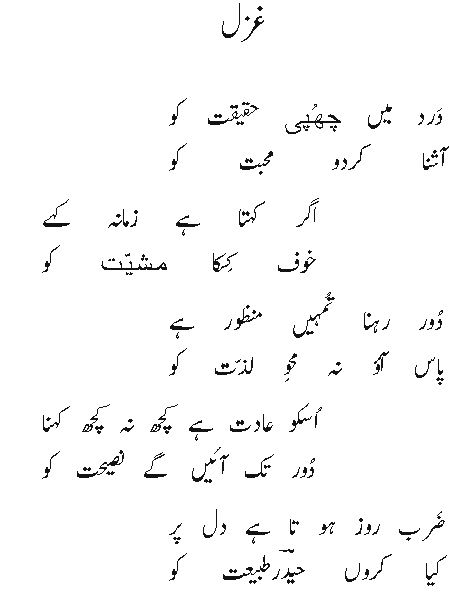 غزل
دَرد میں چھُپی حقیقت کو
آشنا کردو محبت کو
اگر کہتا ہے زمانہ کہے
خوف کِسکا مشیّت کو
دُور رہنا تُمہیں منظور ہے
پاس آؤ نہ محوِ لذّت کو
اُسکو عادت ہے کچھ نہ کچھ کہنا
دُور تک آئیں گے نصیحت کو
ضَرب روز ہو تا ہے دل پر
کیا کروں حیدؔر طبیعت کو